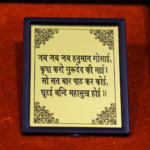 जय जय जय हनुमान गोसाईं,
कृपा करो गुरूदेव की नाई।
सो सत बार पाठ कर कोई,
छूटई बन्दि महासुख होई॥